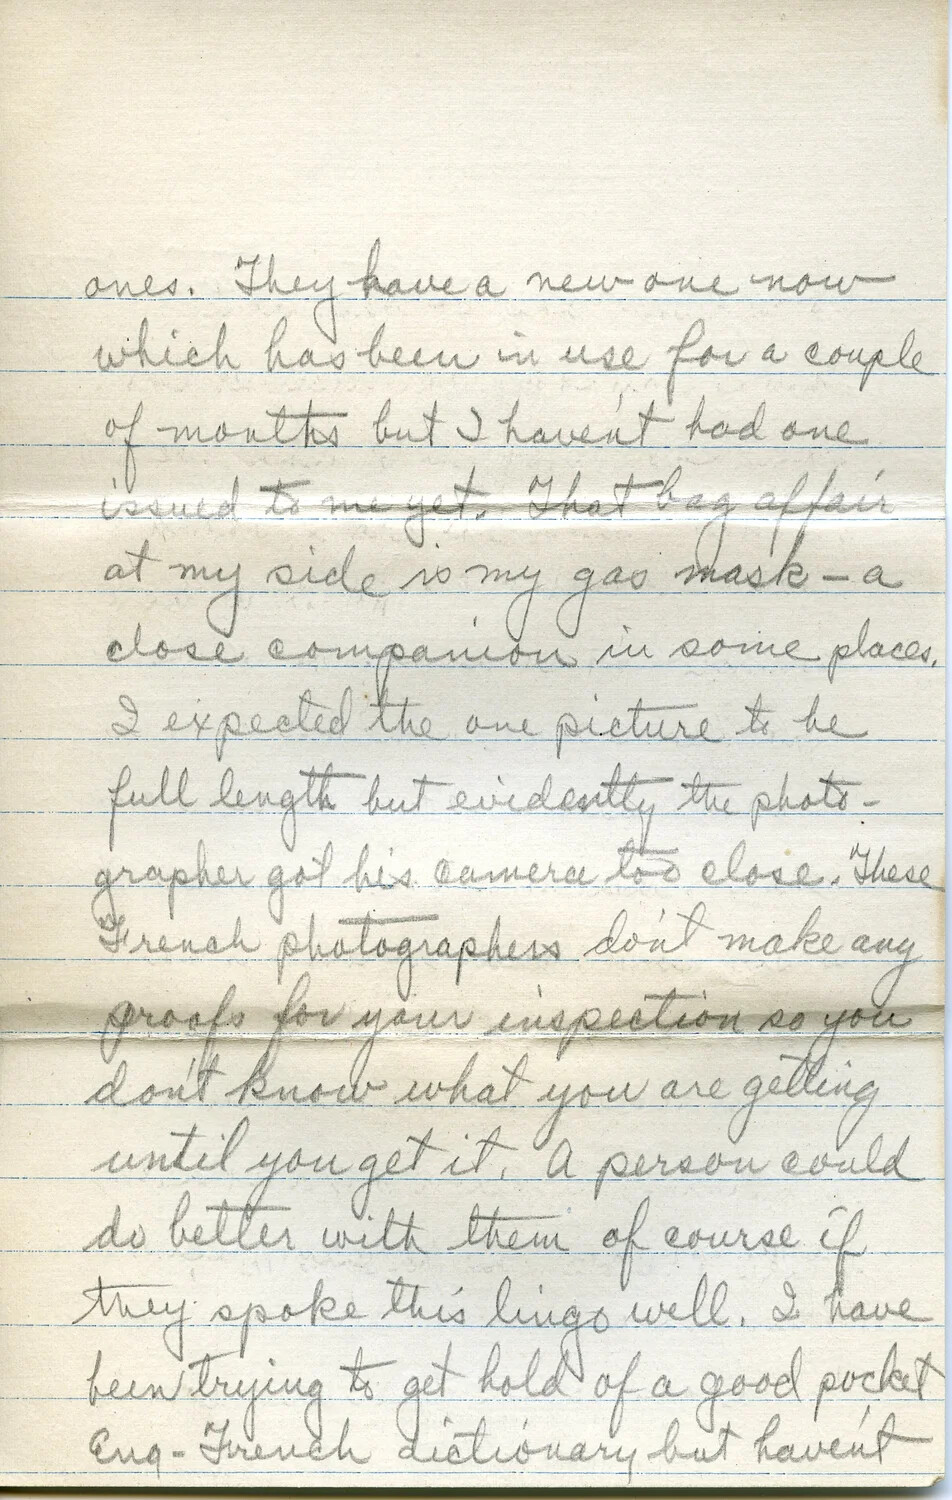 ones. They have a new one now
which has been in use for a couple
of months but I haven't had one
issued to me yet. That bag affair
at my side is my gas mask – a
close companion in some places.
I expected the one picture to be
full length but evidently the photo-
grapher got his camera too close. These
French photographers don't make any
proofs for your inspection so you
don't know what you are getting
until you get it. A person could
do better with them of course if
they spoke this lingo well. I have
been trying to get hold of a good pocket
Eng-French dictionary but haven't